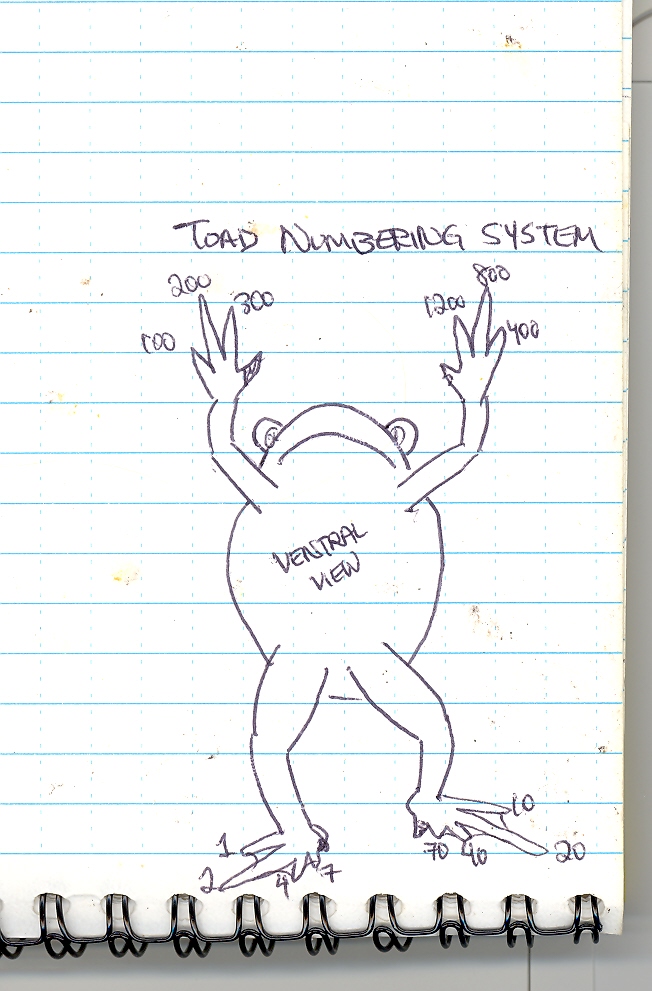 TOAD NUMBERING SYSTEM
200
300
100
800
1200
400
VENTRAL
VIEW
10
1
70
40
20
2
4
7